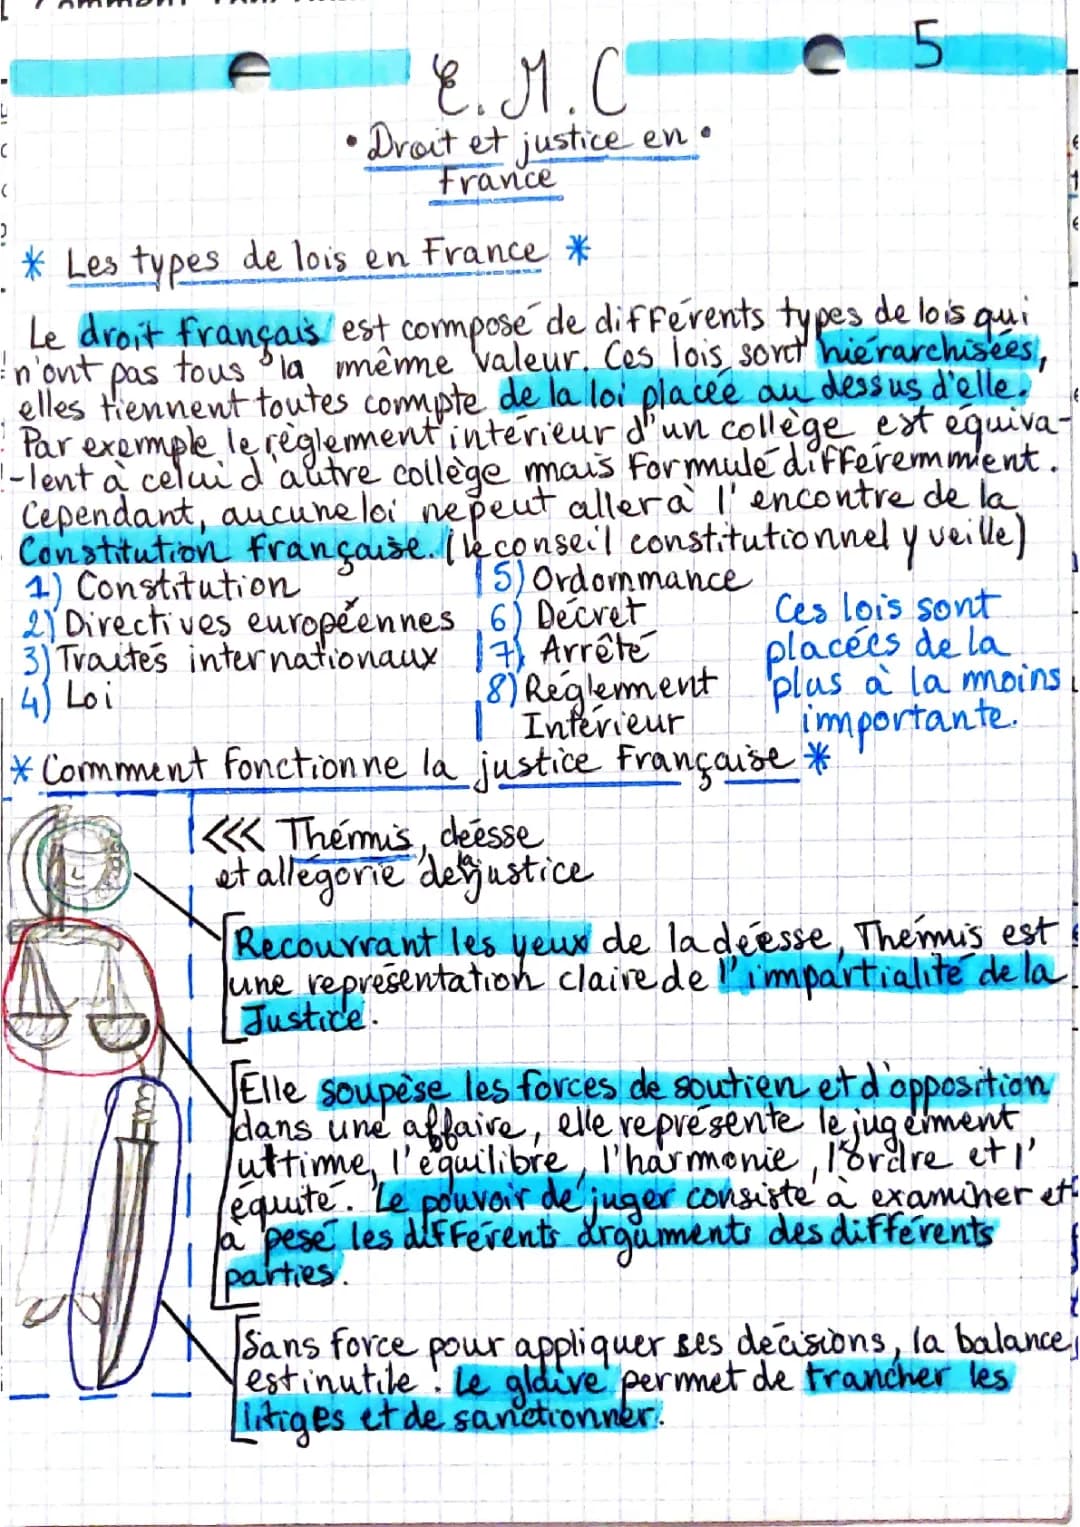 5
E.M.C
• Droit et justice en •
France
* Les types de lois en France *
Le droit français est composé de différents types de lois qui
n'ont pas tous la même valeur. Ces lois sont hiérarchisées,
elles tiennent toutes compte de la loi placée au dessus d'elle.
Par exemple le règlement intérieur d'un collège est équiva-
-lent à celui d'autre collège mais formulé différemment.
Cependant, aucune loi ne peut aller à l'encontre de la
Constitution française. (le conseil constitutionnel y veille)
1) Constitution
2) Directives européennes
3) Traités internationaux
4) Loi
5) Ordonnance
6) Décret
7) Arrêté
8) Réglement
Intérieur
Ces lois sont
placées de la
plus à la moins
importante.
* Comment fonctionne la justice Française *
<<< Thémis, déesse
et allégorie de la justice
Recouvrant les yeux de la déesse, Thémis est
une représentation claire de l'impartialité de la
Justice.
Elle soupèse les forces de soutien et d'opposition
dans une affaire, elle représente le jugement
ultime, l'équilibre, l'harmonie, l'ordre et l'
équité. Le pouvoir de juger consiste à examiner et
a pesé les différents arguments des différents
parties.
Sans force pour appliquer ses décisions, la balance
est inutile. Le glaive permet de trancher les
litiges et de sanctionner.